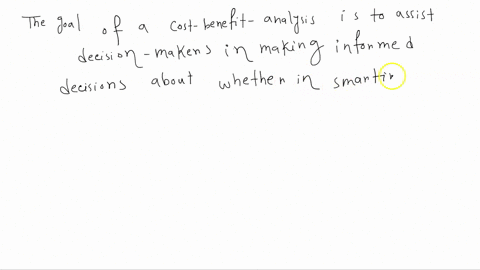 The goal of a cost-benefit-analysis is to assist
decision-makers in making informed
decisions about whether in smartin